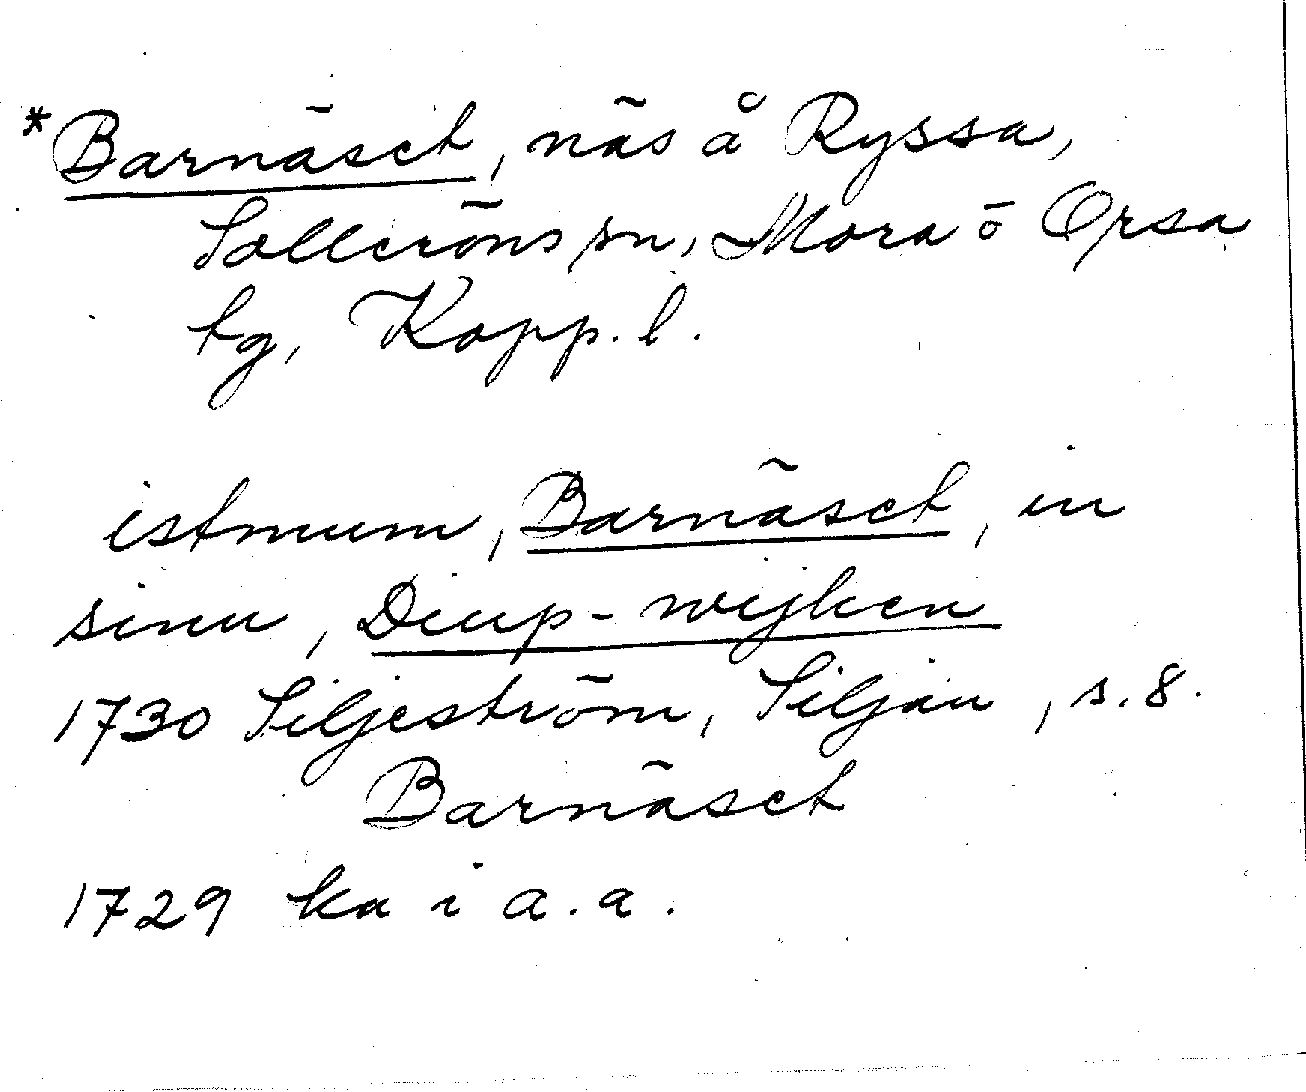 *Barnäset, näs å Ryssa,
Solleröns sn, Mora o Orsa
tg, Kopp. l.
istmum, Barnäset, in
sinu, Diup-wijken
1730 Siljeström, Siljan, s. 8.
Barnäset
1729 ka i a.a.